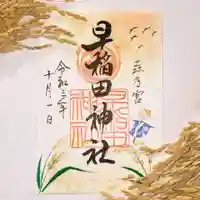 早稲田神社
令和三年
十月一日